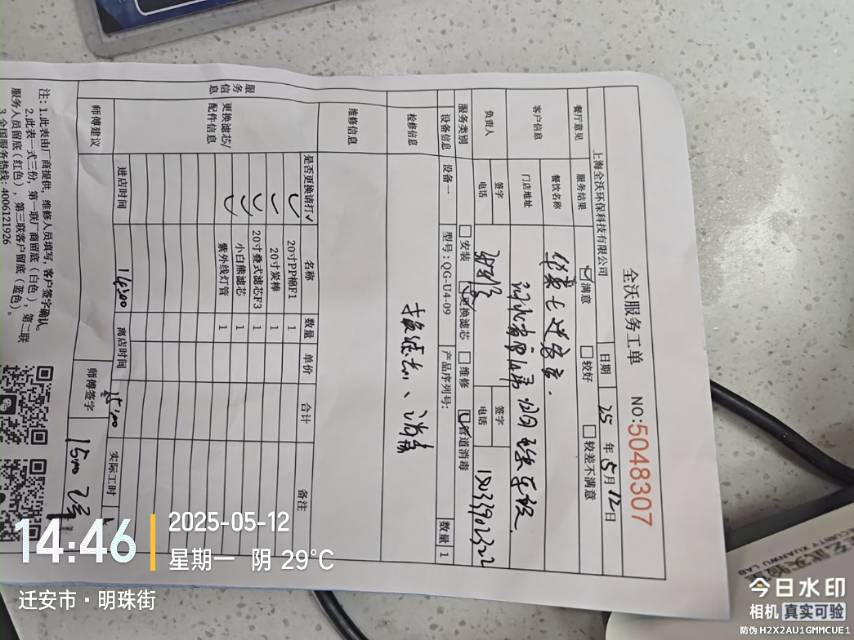 全沃服务工单
NO:5048307
上海全沃环保科技有限公司
日期 25 年 5 月 12 日
餐厅意见 服务结果 满意 较好 较差不满意
客户信息 餐饮名称
门店地址 河北省
负责人 签字 签字
电话 电话
服务类别 安装 更换滤芯 维修 管道消毒
设备信息 设备一 型号:QG-U4-09 产品序列号: 数量 1
检修信息 换滤芯、消毒
维修信息
服务信息
更换滤芯/配件信息
是否更换请打✓ 名称 数量 单价 合计 备注
✓ 20寸PP棉F1 1
✓ 20寸炭棒 1
✓ 20寸叠式滤芯F3 1
✓ 小白熊滤芯 1
紫外线灯管 1
进店时间 离店时间 实际工时
师傅建议 师傅签字
注:1.此表由厂商提供,维修人员填写,客户签字确认。
2.此表一式三份,第一联厂商留底(白色),第二联
服务人员留底(红色),第三联客户留底(蓝色)。
3.全国服务热线:4006121926
14:46
2025-05-12
星期一 阴 29°C
迁安市·明珠街
今日水印
相机 真实可验
防伪 H2X2AU1GMMCUE1